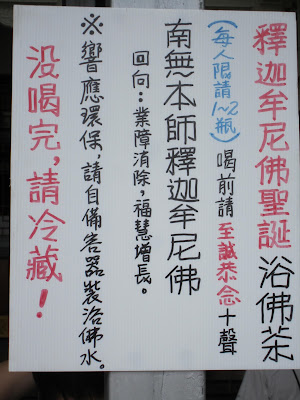 釋迦牟尼佛聖誕浴佛茶
(每人限請1~2瓶)喝前請至誠恭念十聲
南無本師釋迦牟尼佛
回向:業障消除,福慧增長。
※響應環保,請自備容器裝浴佛水。
没喝完,請冷藏!